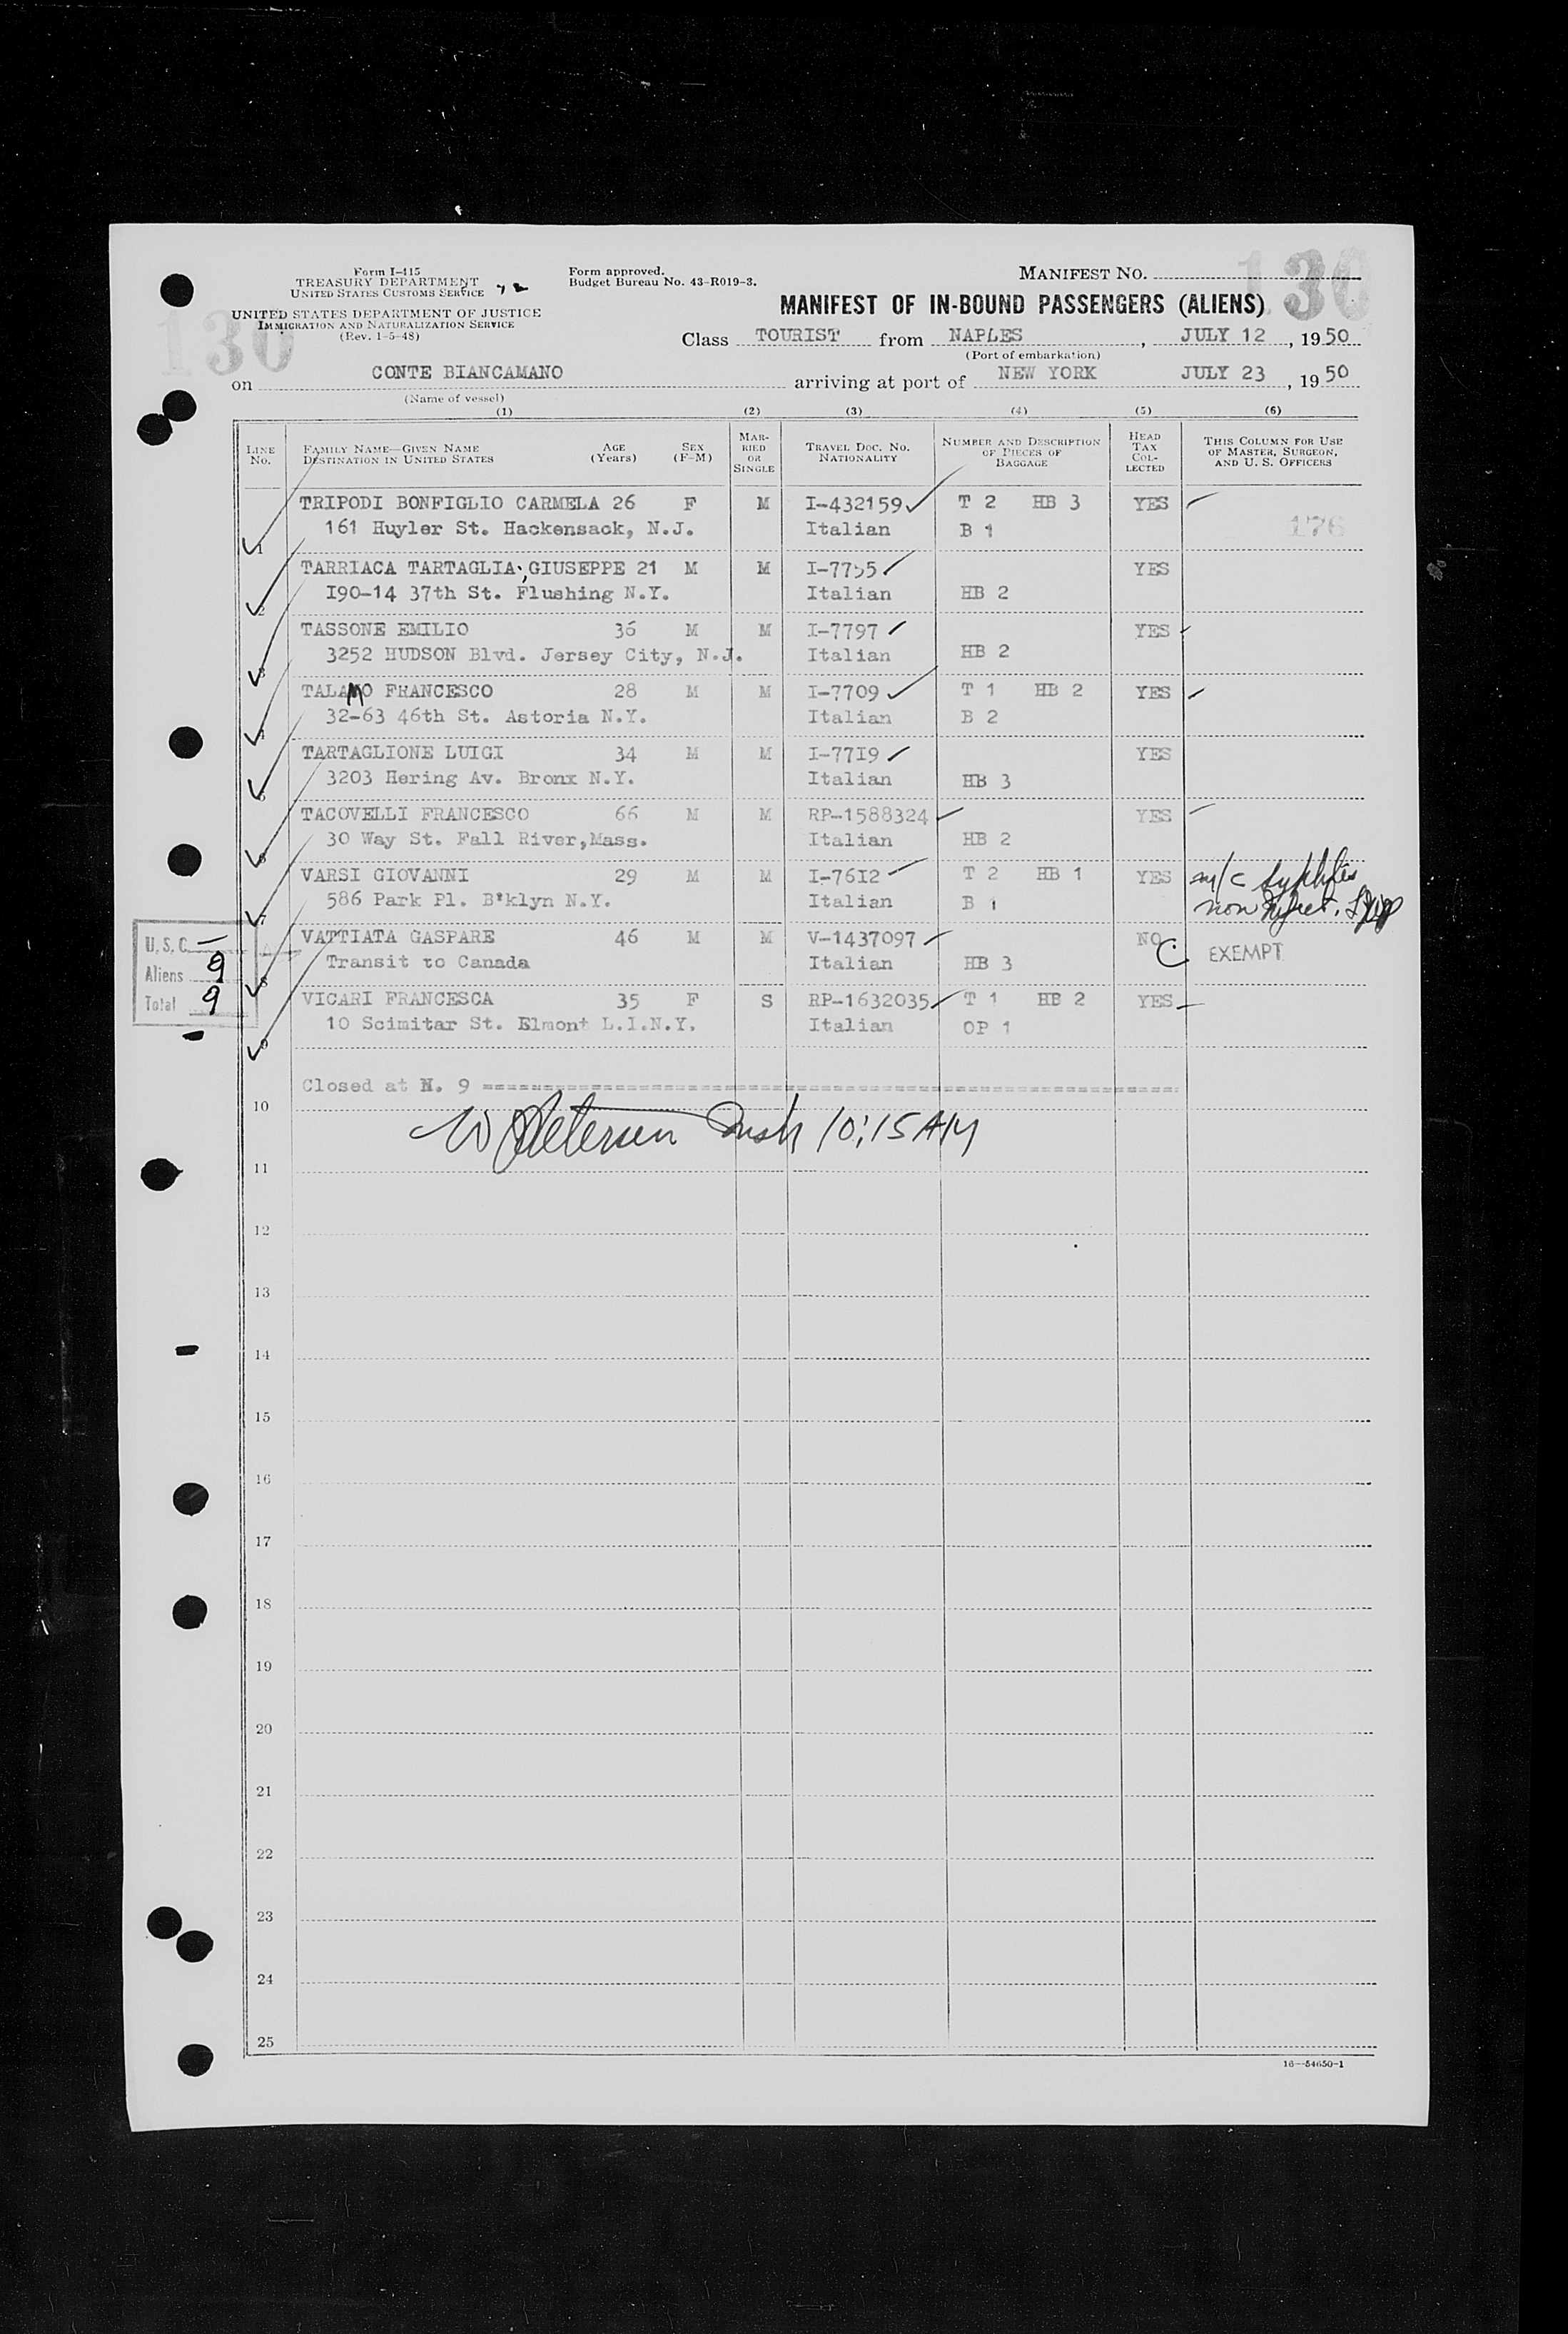 Form I-415
TREASURY DEPARTMENT
UNITED STATES CUSTOMS SERVICE
UNITED STATES DEPARTMENT OF JUSTICE
IMMIGRATION AND NATURALIZATION SERVICE
(Rev. 1-5-48)
Form approved.
Budget Bureau No. 43-R019-3.
MANIFEST NO. 130
130
MANIFEST OF IN-BOUND PASSENGERS (ALIENS)
Class TOURIST from NAPLES, JULY 12, 1950
(Port of embarkation)
on CONTE BIANCAMANO arriving at port of NEW YORK JULY 23, 1950
(Name of vessel)
(1) (2) (3) (4) (5) (6)
LINE No. FAMILY NAME—GIVEN NAME DESTINATION IN UNITED STATES AGE (Years) SEX (F-M) MARRIED OR SINGLE TRAVEL DOC. NO. NATIONALITY NUMBER AND DESCRIPTION OF PIECES OF BAGGAGE HEAD TAX COLLECTED THIS COLUMN FOR USE OF MASTER, SURGEON, AND U. S. OFFICERS
1 TRIPODI BONFIGLIO CARMELA 26 F M I-432159 T 2 HB 3 YES
161 Huyler St. Hackensack, N.J. Italian B 1 176
2 TARRIACA TARTAGLIA, GIUSEPPE 21 M M I-7755 YES
I90-14 37th St. Flushing N.Y. Italian HB 2
3 TASSONE EMILIO 36 M M I-7797 YES
3252 HUDSON Blvd. Jersey City, N.J. Italian HB 2
4 TALAMO FRANCESCO 28 M M I-7709 T 1 HB 2 YES
32-63 46th St. Astoria N.Y. Italian B 2
5 TARTAGLIONE LUIGI 34 M M I-77I9 YES
3203 Hering Av. Bronx N.Y. Italian HB 3
6 TACOVELLI FRANCESCO 66 M M RP-1588324 YES
30 Way St. Fall River,Mass. Italian HB 2
7 VARSI GIOVANNI 29 M M I-76I2 T 2 HB 1 YES m/c syphilis
586 Park Pl. B'klyn N.Y. Italian B 1 non
8 VATTIATA GASPARE 46 M M V-1437097 NO C EXEMPT
Transit to Canada Italian HB 3
9 VICARI FRANCESCA 35 F S RP-1632035 T 1 HB 2 YES
10 Scimitar St. Elmont L.I.N.Y. Italian OP 1
U.S.C. —
Aliens 9
Total 9
Closed at N. 9 ================
10
W Petersen Insp 10:15 AM
11
12
13
14
15
16
17
18
19
20
21
22
23
24
25
16—54650-1